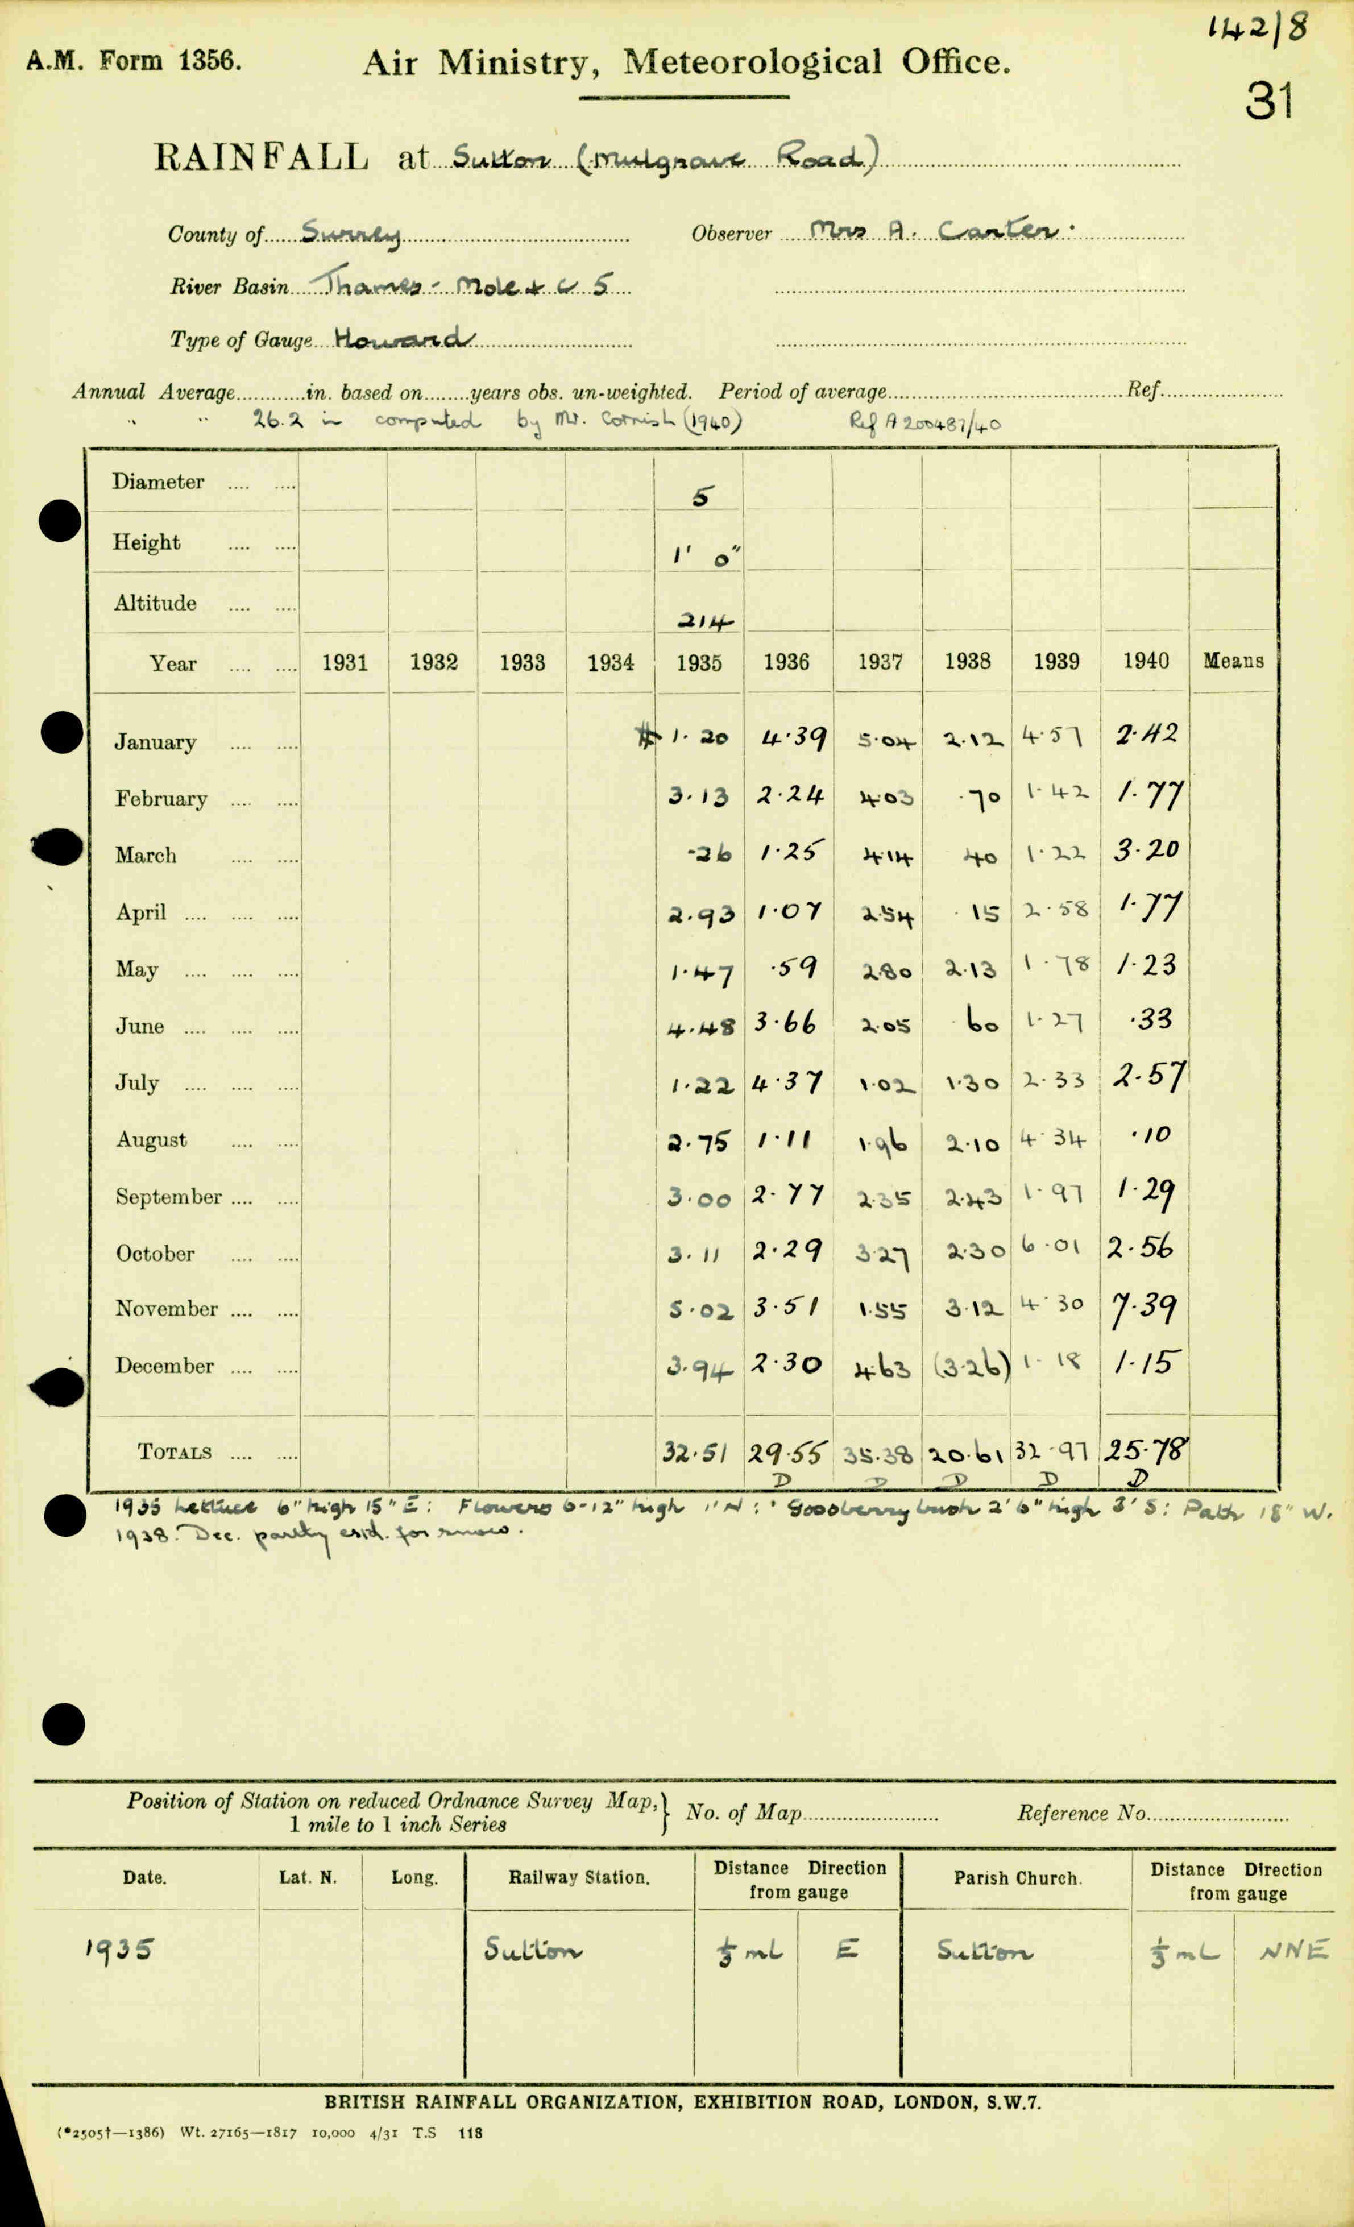 142/8
A.M. Form 1356. Air Ministry, Meteorological Office.
31
RAINFALL at Sutton (Mulgrave Road)
County of Surrey Observer Mrs A. Carter.
River Basin Thames - Mole + C 5
Type of Gauge Howard
Annual Average in. based on years obs. un-weighted. Period of average Ref.
" " 26.2 in computed by Mr. Cornish (1940) Ref A 200487/40
Diameter 5
Height 1' 0"
Altitude 214
Year 1931 1932 1933 1934 1935 1936 1937 1938 1939 1940 Means
January 1.20 4.39 5.04 2.12 4.57 2.42
February 3.13 2.24 4.03 .70 1.42 1.77
March .26 1.25 4.14 40 1.22 3.20
April 2.93 1.07 2.54 .15 2.58 1.77
May 1.47 .59 2.80 2.13 1.78 1.23
June 4.48 3.66 2.05 .60 1.27 .33
July 1.22 4.37 1.02 1.30 2.33 2.57
August 2.75 1.11 1.96 2.10 4.34 .10
September 3.00 2.77 2.35 2.43 1.97 1.29
October 3.11 2.29 3.27 2.30 6.01 2.56
November 5.02 3.51 1.55 3.12 4.30 7.39
December 3.94 2.30 4.63 (3.26) 1.18 1.15
TOTALS 32.51 29.55 35.38 20.61 32.97 25.78
D D D D D
1935 Lettuce 6" high 15" E: Flowers 6-12" high 1' N: Gooseberry bush 2' 6" high 3' S: Path 18" W.
1938. Dec. partly estd. for snow.
Position of Station on reduced Ordnance Survey Map, 1 mile to 1 inch Series } No. of Map Reference No.
Date. Lat. N. Long. Railway Station. Distance Direction from gauge Parish Church. Distance Direction from gauge
1935 Sutton 1/3 mL E Sutton 1/3 mL NNE
BRITISH RAINFALL ORGANIZATION, EXHIBITION ROAD, LONDON, S.W.7.
(*2505†—1386) Wt. 27165—1817 10,000 4/31 T.S 118